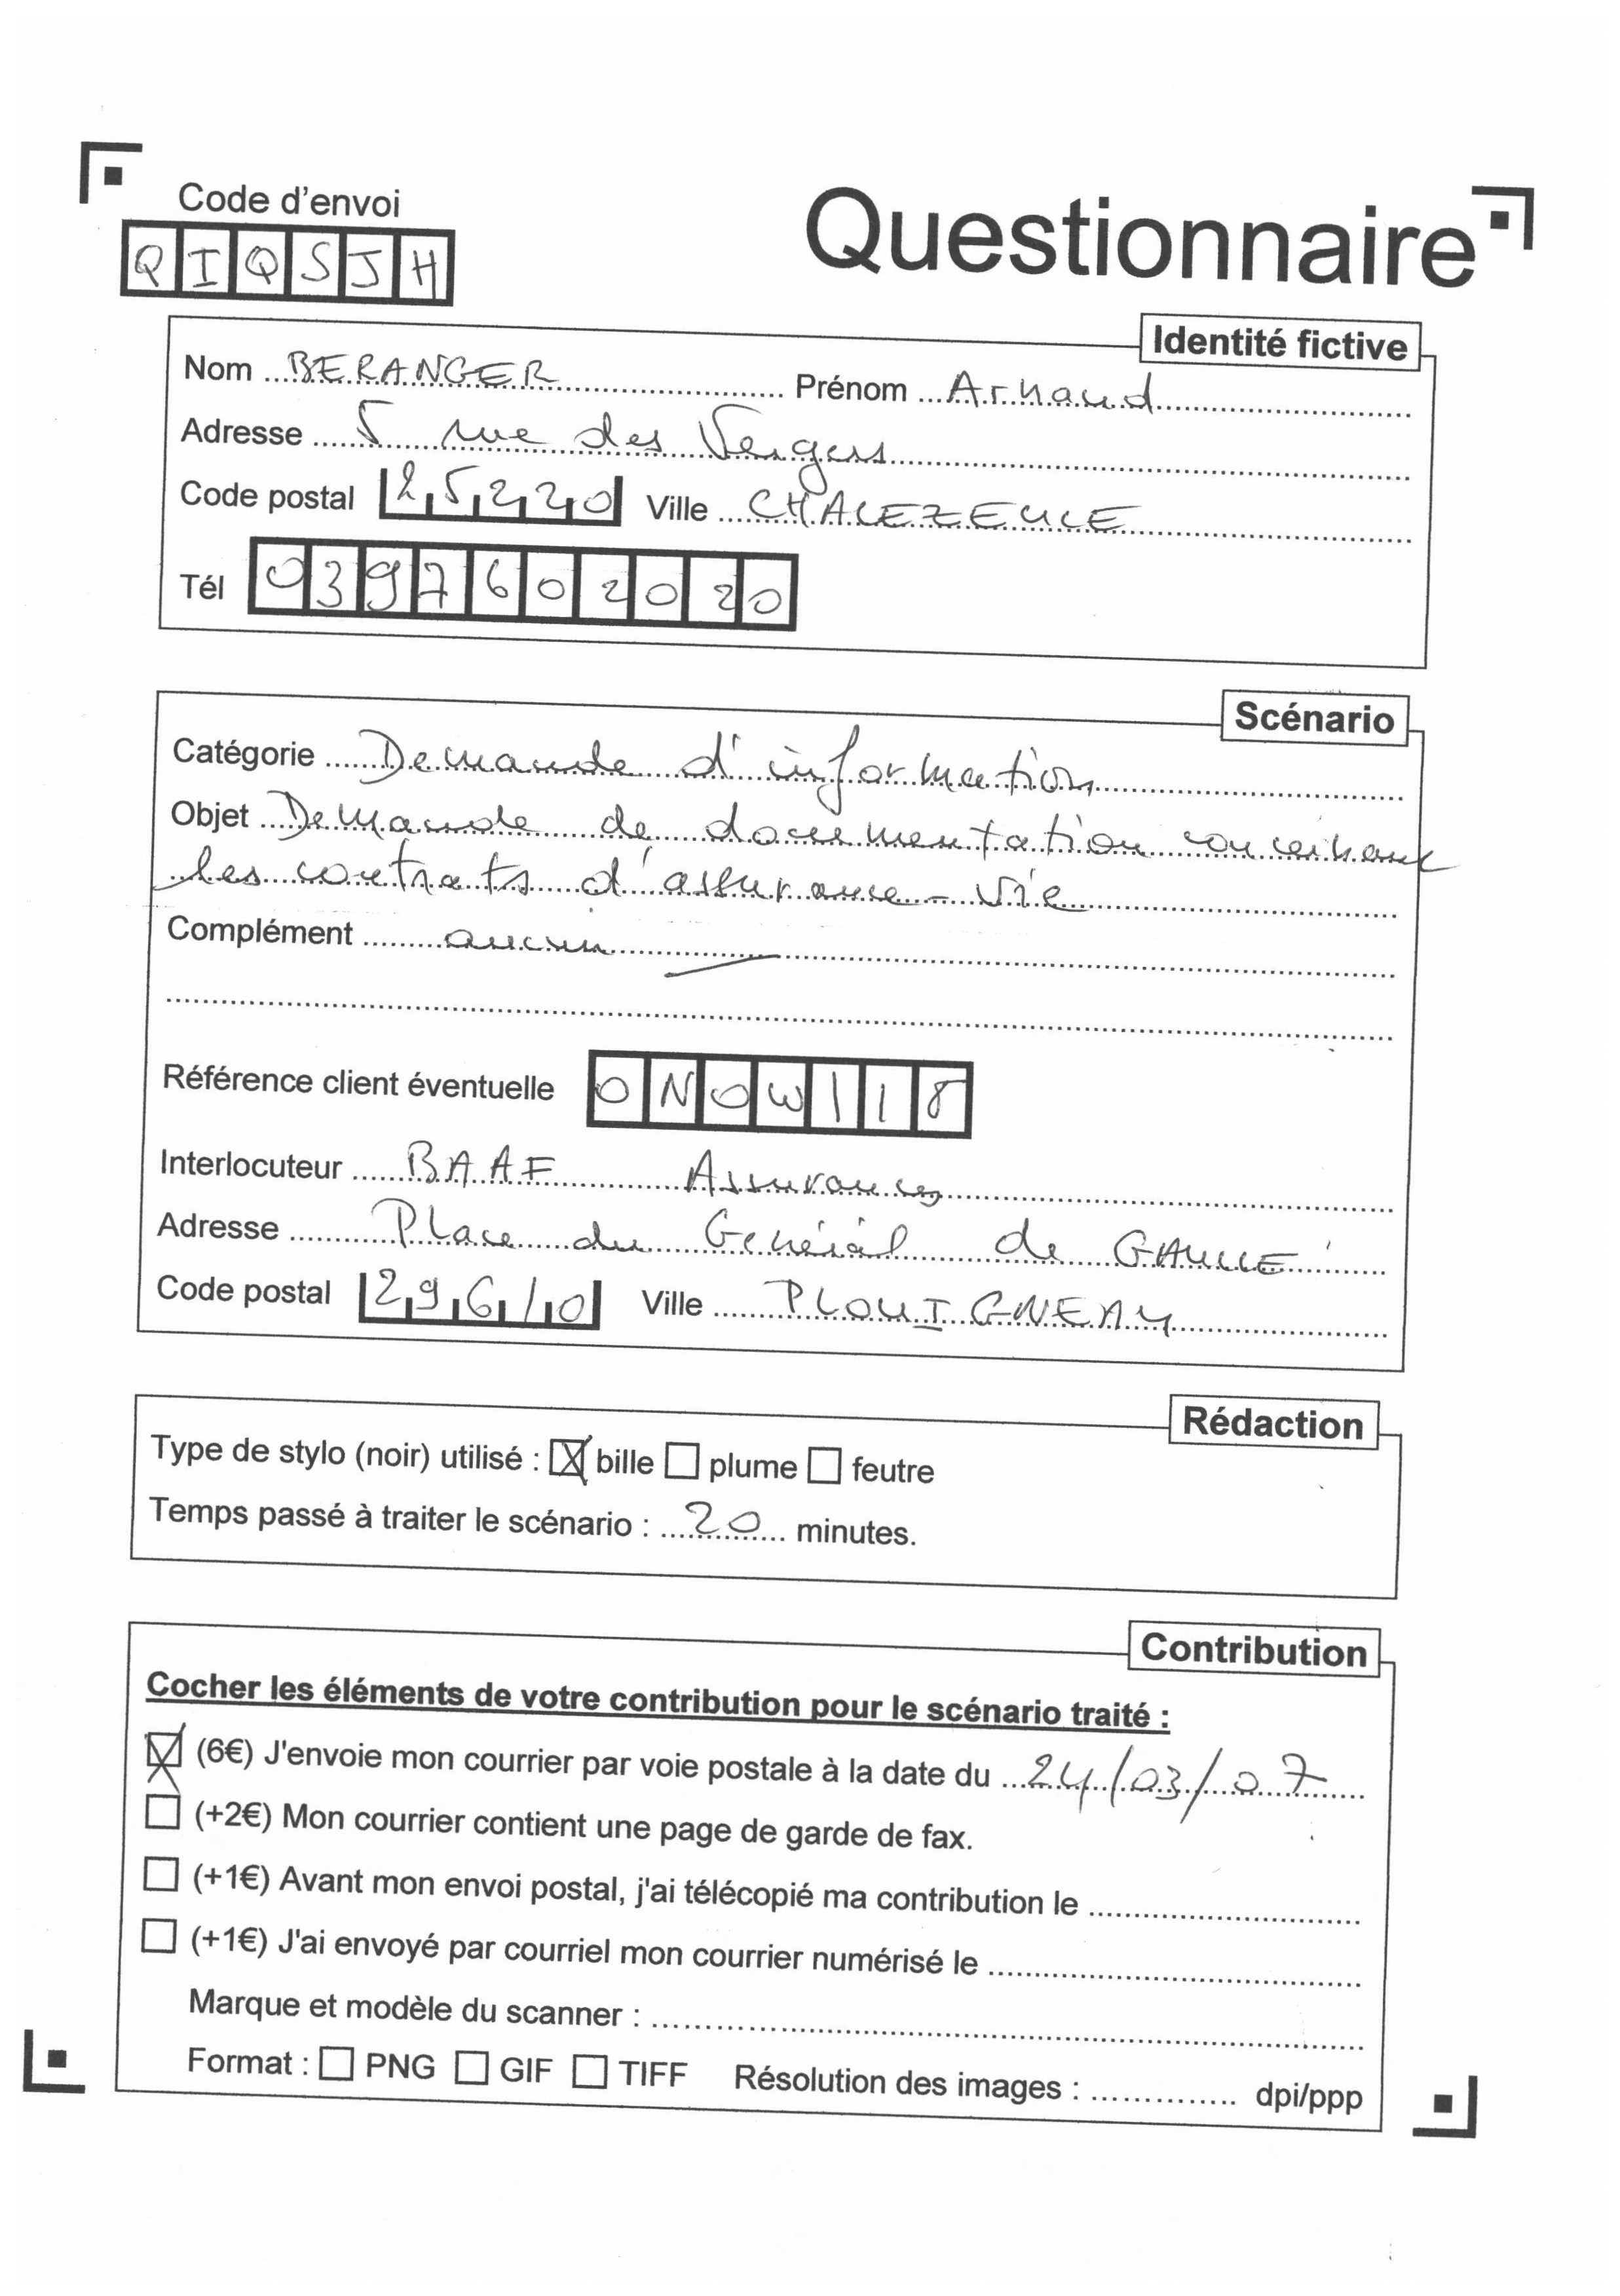 Code d'envoi
Questionnaire
QIQSJH
Identité fictive
Nom BERANGER Prénom Arnaud
Adresse 5 rue des Vergers
Code postal 25220 Ville CHALEZEULE
Tél 0397602020
Scénario
Catégorie Demande d'information
Objet Demande de documentation concernant
les contrats d'assurance-vie
Complément aucun
Référence client éventuelle ONOW118
Interlocuteur BAAF Assurances
Adresse Place du Général de GAULLE
Code postal 29610 Ville PLOUIGNEAU
Rédaction
Type de stylo (noir) utilisé : ☒ bille ☐ plume ☐ feutre
Temps passé à traiter le scénario : 20 minutes.
Contribution
Cocher les éléments de votre contribution pour le scénario traité :
☒ (6€) J'envoie mon courrier par voie postale à la date du 24/03/07
☐ (+2€) Mon courrier contient une page de garde de fax.
☐ (+1€) Avant mon envoi postal, j'ai télécopié ma contribution le
☐ (+1€) J'ai envoyé par courriel mon courrier numérisé le
Marque et modèle du scanner :
Format : ☐ PNG ☐ GIF ☐ TIFF Résolution des images : dpi/ppp